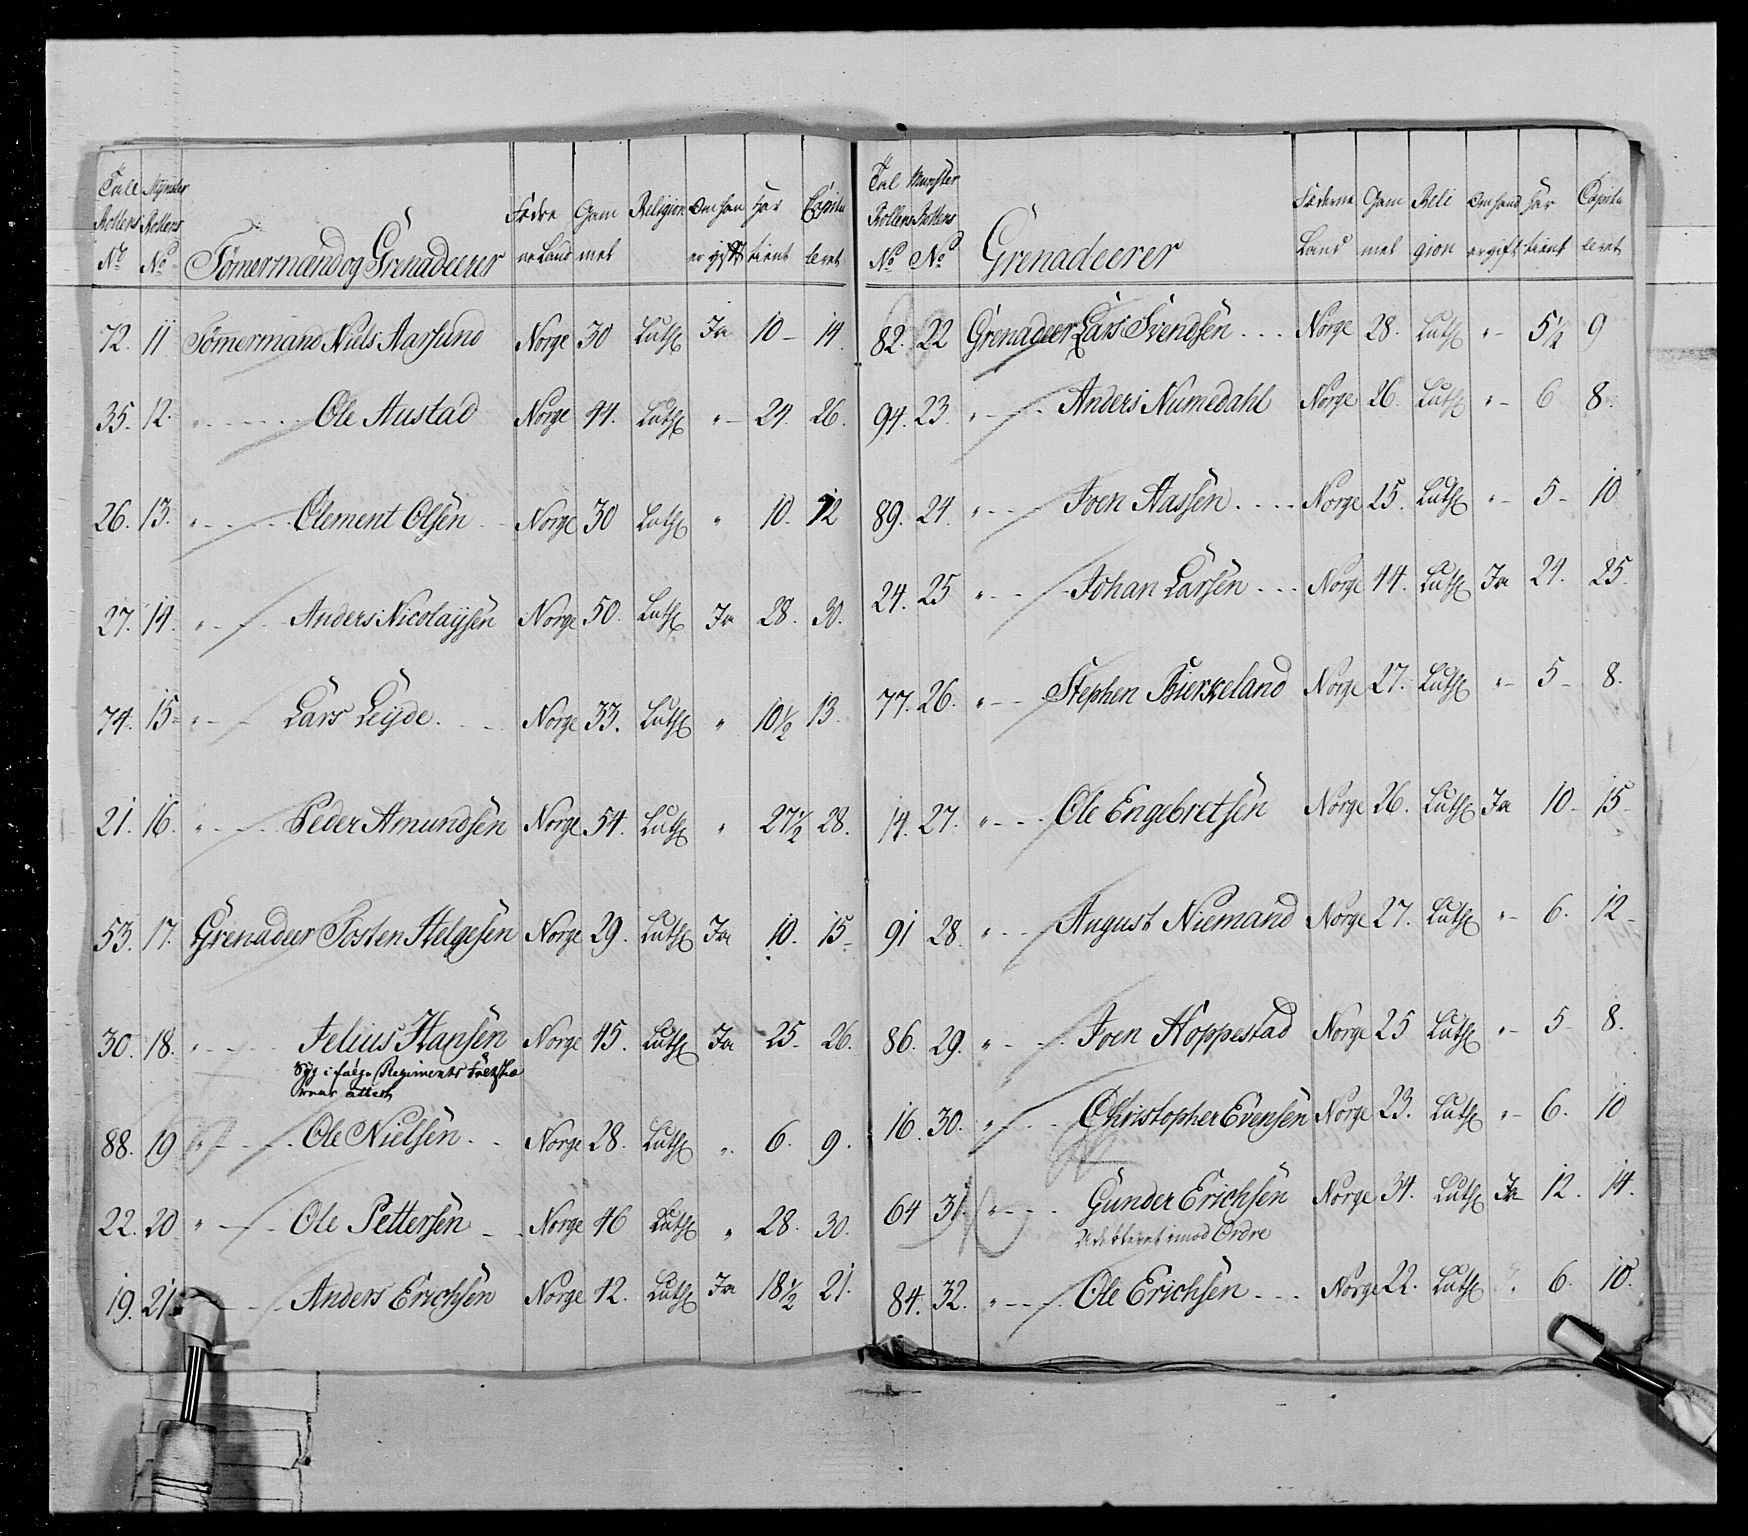 Tall Rollens No | Mynster Rollens No | Tömermænd og Grenadeerer | Fædre ne Land | Gam mel | Religion | Om han er gift | Har tient | Capitu leret
72. 11 Tömermand Niels Aarsund Norge 30 Luthr Ja 10 - 14
35. 12. " - - - Ole Austad Norge 44. Luthr " - 24. 26.
26. 13. " - - - Clement Olsen Norge 30 Luthr " 10. 12
27. 14. " - - - Anders Nicolaysen Norge 50. Luthr Ja 28. 30.
74. 15. " - - Lars Leyde. Norge 33. Luthr " 10½ 13.
21. 16. " - - Peder Amundsen Norge 54. Luthr " 27½ 28.
53. 17. Grenadeer Tosten Helgesen Norge 29. Luthr Ja 10. 15 -
30. 18. " - - Jelius Hansen Norge 45. Luthr Ja 25 - 26.
Syg i følge Regiments
attest
88. 19 " - - - Ole Nielsen - - Norge 28. Luthr " 6. 9.
22. 20 " - - Ole Pettersen - Norge 46 Luthr " 28 30.
19. 21. - - Anders Erichsen Norge 42. Luthr Ja 18½ 21.
Tal Rollens No | Munster Rollens No | Grenadeerer | Fæderne Land | Gam mel | Reli gion | Om hand er gift | har tient | Capitu leret
82. 22 Grenadeer Lars Svendsen - - - Norge 28. Luthr " - 5½ 9
94. 23. " - - - Anders Numedahl Norge 26. Luthr " - 6 8.
89. 24. " - - - Joen Aassen. - - - Norge 25. Luthr " - 5 - 10
24. 25 " - - - Johan Larsen - - - Norge 44. Luthr Ja 24. 25.
77. 26. " - - Stephen Bierkeland Norge 27. Luthr " - 5 - 8.
14. 27. " - - - Ole Engebretsen Norge 26. Luthr Ja 10 - 15 -
91 28. " - - August Niemand Norge 27. Luthr " - 6. 12 -
86. 29. " - - - Joen Hoppestad Norge 25 Luthr " - 5 - 8.
16. 30. " - - - Christopher Evensen Norge 23. Luthr " - 6. 10
64 31 " - - - Gunder Erichsen Norge 34. Luthr Ja 12. 14.
imod Ordre
84. 32. " - - - Ole Erichsen - - - Norge 22. Luthr 6. 10.